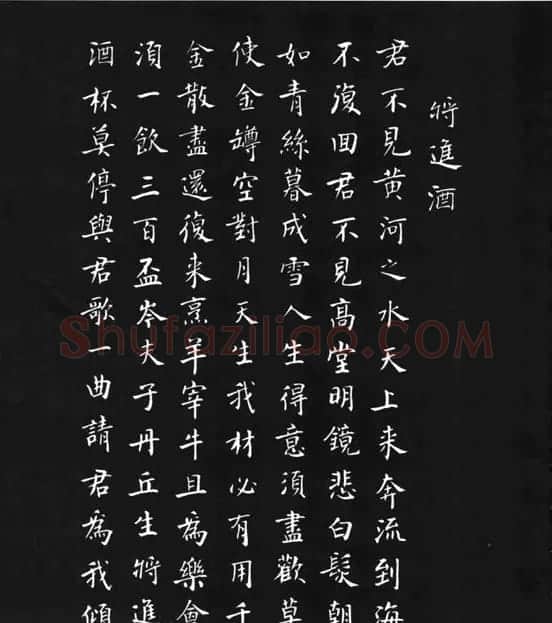 將進酒
君不見黃河之水天上来奔流到海
不復回君不見高堂明鏡悲白髮朝
如青絲暮成雪人生得意須盡歡莫
使金罇空對月天生我材必有用千
金散盡還復来烹羊宰牛且為樂會
須一飲三百盃岑夫子丹丘生將進
酒杯莫停與君歌一曲請君為我傾
Shufaziliao.COM